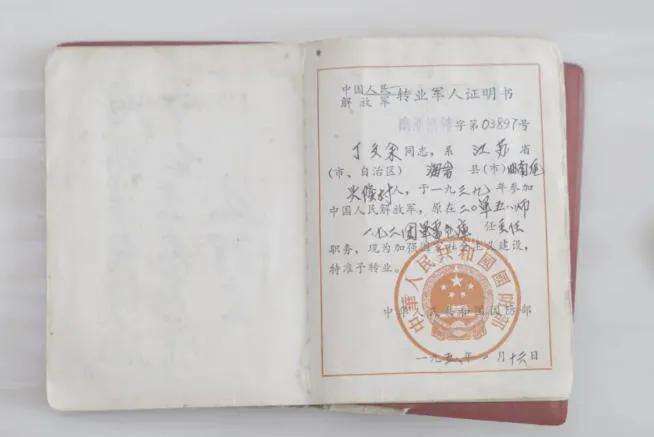 中国人民
解放军 转业军人证明书
字第03897号
丁文余同志，系 江苏 省
(市、自治区) 县(市)
村人，于一九三九年参加
中国人民解放军，原在二〇军五八师
一八二团 任主任
职务，现为加强 社会主义建设，
特准予转业。
中华人民共和国国防部
中華人民共和國國防部
一九五八年 月十六日